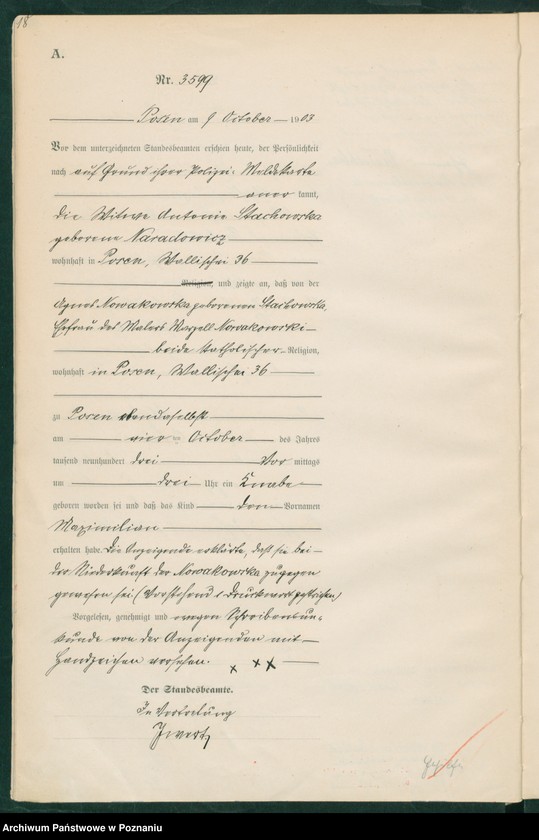 18
A.
Nr. 3599
Posen am 9 October 1903
Vor dem unterzeichneten Standesbeamten erschien heute, der Persönlichkeit
nach auf Grund ihrer Polizei-Meldekarte
aner kannt,
die Witwe Antonie Stachowska
geborene Naradowicz
wohnhaft in Posen, Wallischei 36
Religion, und zeigte an, daß von der
Agnes Nowakowska geborenen Stachowska,
Ehefrau des Malers Mazell Nowakowski
beide katholischer Religion,
wohnhaft in Posen, Wallischei 36
zu Posen ebendaselbst
am vier October des Jahres
tausend neunhundert drei Vor mittags
um drei Uhr ein Knabe
geboren worden sei und daß das Kind den Vornamen
Maximilian
erhalten habe. Die Anzeigende erklärte, daß sie bei
der Niederkunft der Nowakowska zugegen
gewesen sei (Vorstehend 1 Druckwort gestrichen)
Vorgelesen, genehmigt und wegen Schreibensun=
kunde von der Anzeigenden mit
Handzeichen versehen. x x x
Der Standesbeamte.
In Vertretung
Archiwum Państwowe w Poznaniu